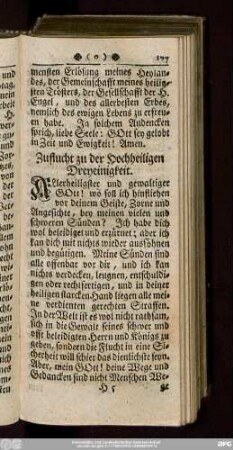 ( o ) 177
mensten Erlösung meines Heylan-
des, der Gemeinschafft meines heilig-
sten Trösters, der Gesellschafft der H.
Engel, und des allerbesten Erbes,
nemlich des ewigen Lebens zu erfreu-
en habe. In solchem Andencken
sprich, liebe Seele: GOtt sey gelobt
in Zeit und Ewigkeit! Amen.
Zuflucht zu der Hochheiligen
Dreyeinigkeit.
Allerheiligster und gewaltiger
GOtt! wo soll ich hinfliehen
vor deinem Geiste, Zorne und
Angesichte, bey meinen vielen und
schweren Sünden? Ich habe dich
wol beleidiget und erzürnet; aber ich
kan dich mit nichts wieder aussöhnen
und begütigen. Meine Sünden sind
alle offenbar vor dir, und ich kan
nichts verdecken, leugnen, entschuldi-
gen oder rechtfertigen, und in deiner
heiligen starcken Hand liegen alle mei-
ne verdienten gerechten Straffen.
In der Welt ist es wol nicht rathsam,
sich in die Gewalt seines schwer und
offt beleidigten Herrn und Königs zu
geben, sondern die Flucht in eine Si-
cherheit will schier das dienlichste seyn.
Aber, mein GOtt! deine Wege und
Gedancken sind nicht Menschen We-
H 5 ge